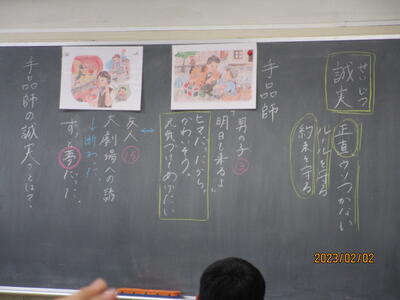 せいじつ
誠実
正直 ウソつかない
ルールを守る
約束を守る
手品師
男の子
「明日も来るよ」
ヒマだったから。
かわいそう。
元気づけてあげたい
友人
大劇場への誘
↓断わった。
ずっと夢だった。
手品師の誠実さとは?
2023/02/02